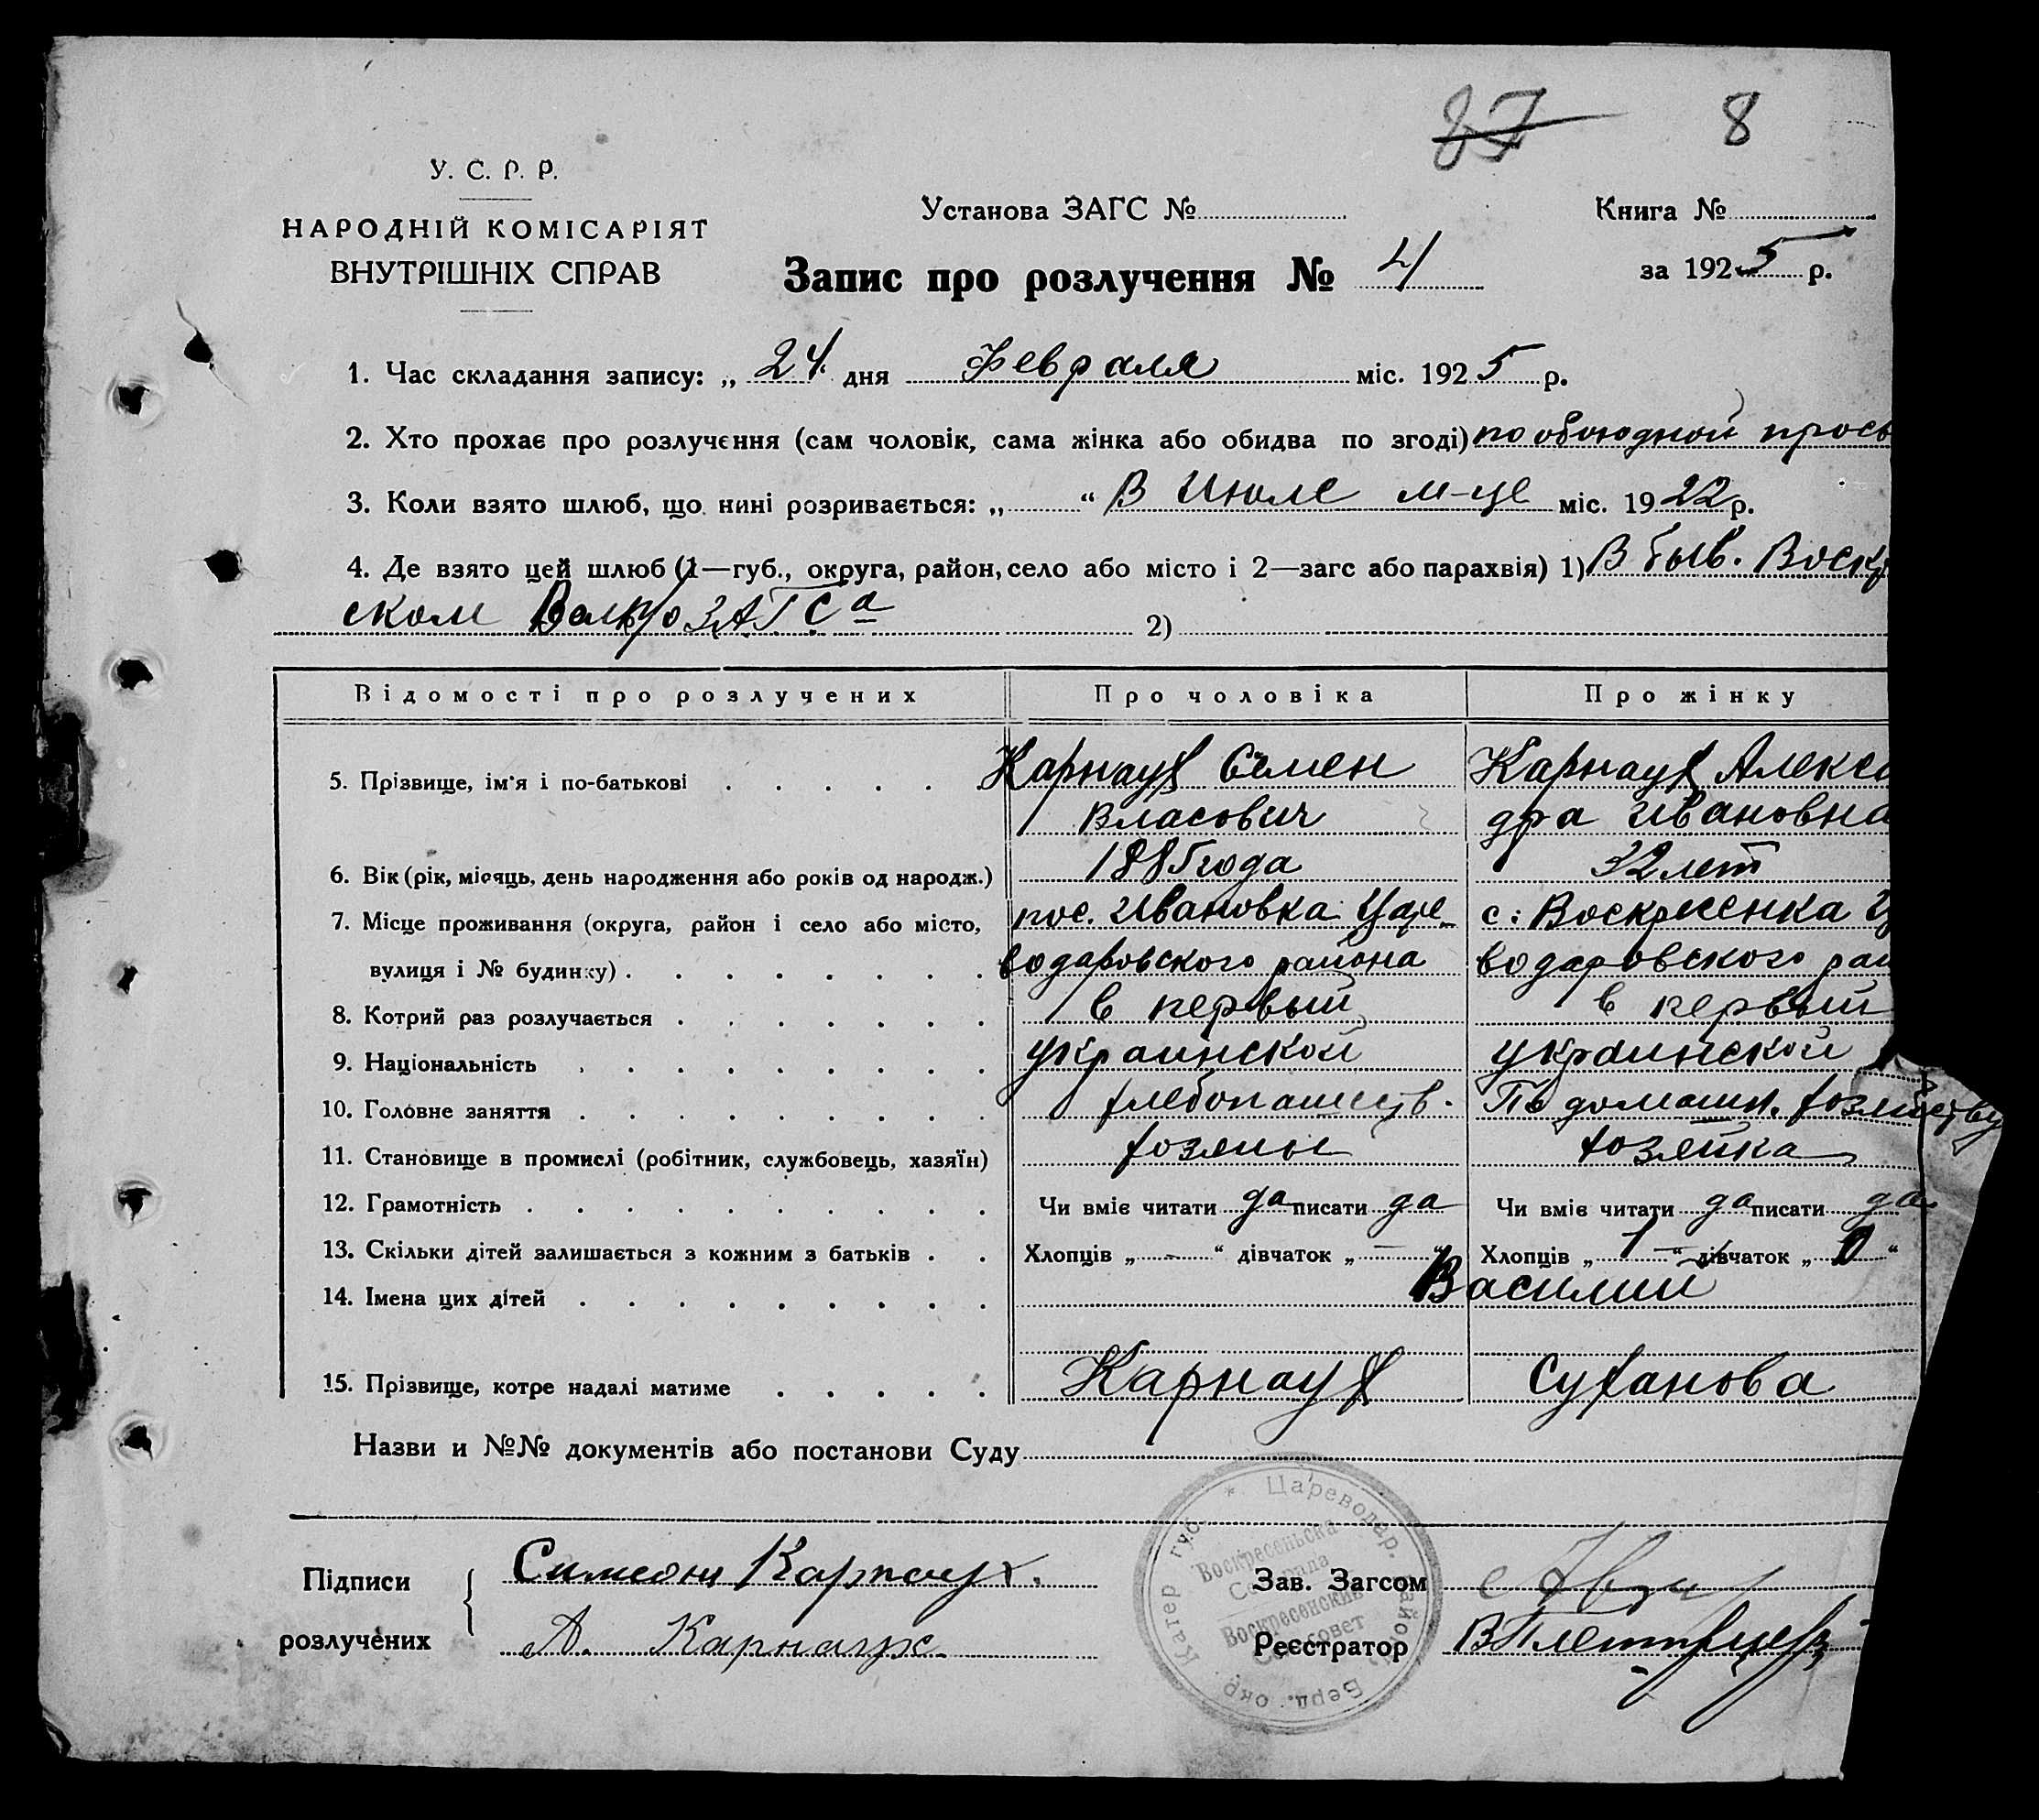 87 8
У. С. Р. Р.
НАРОДНІЙ КОМІСАРІЯТ
ВНУТРІШНІХ СПРАВ
Установа ЗАГС №
Книга №
за 1925 р.
Запис про розлучення № 4
1. Час складання запису: „ 24 дня Февраля міс. 1925 р.
2. Хто прохає про розлучення (сам чоловік, сама жінка або обидва по згоді) по обоюдной прось
3. Коли взято шлюб, що нині розривається: „ “ В Июле м-це міс. 1922 р.
4. Де взято цей шлюб (1—губ., округа, район, село або місто і 2—загс або парахвія) 1) В быв. Воскр
ском ЗАГСа 2)
Відомості про розлучених Про чоловіка Про жінку
5. Прізвище, ім'я і по-батькові Карнаух Семен Карнаух Алекса
Власович дра Ивановна
6. Вік (рік, місяць, день народження або років од народж.) 1885 года 32 лет
7. Місце проживання (округа, район і село або місто, пос. Ивановка Царе- с. Воскресенка Ц
вулиця і № будинку) водаровского района водаровского рай
8. Котрий раз розлучається в первый в первый
9. Національність украинской украинской
10. Головне заняття хлебопашеств. По домашн. хозяйству
11. Становище в промислі (робітник, службовець, хазяїн) хозяин хозяйка
12. Грамотність Чи вміє читати да писати да Чи вміє читати да писати да
13. Скільки дітей залишається з кожним з батьків Хлопців „ — “ дівчаток „ — “ Хлопців „ 1 “ дівчаток „ 0 “
14. Імена цих дітей Василий
15. Прізвище, котре надалі матиме Карнаух Суханова
Назви и №№ документів або постанови Суду
Підписи
розлучених
Симеон Карнаух.
А. Карнаух
Зав. Загсом
Реєстратор
* Цареводар. район Берд. окр. Катер губ.
Воскресенська
Сельрада
Воскресенский
Сельсовет